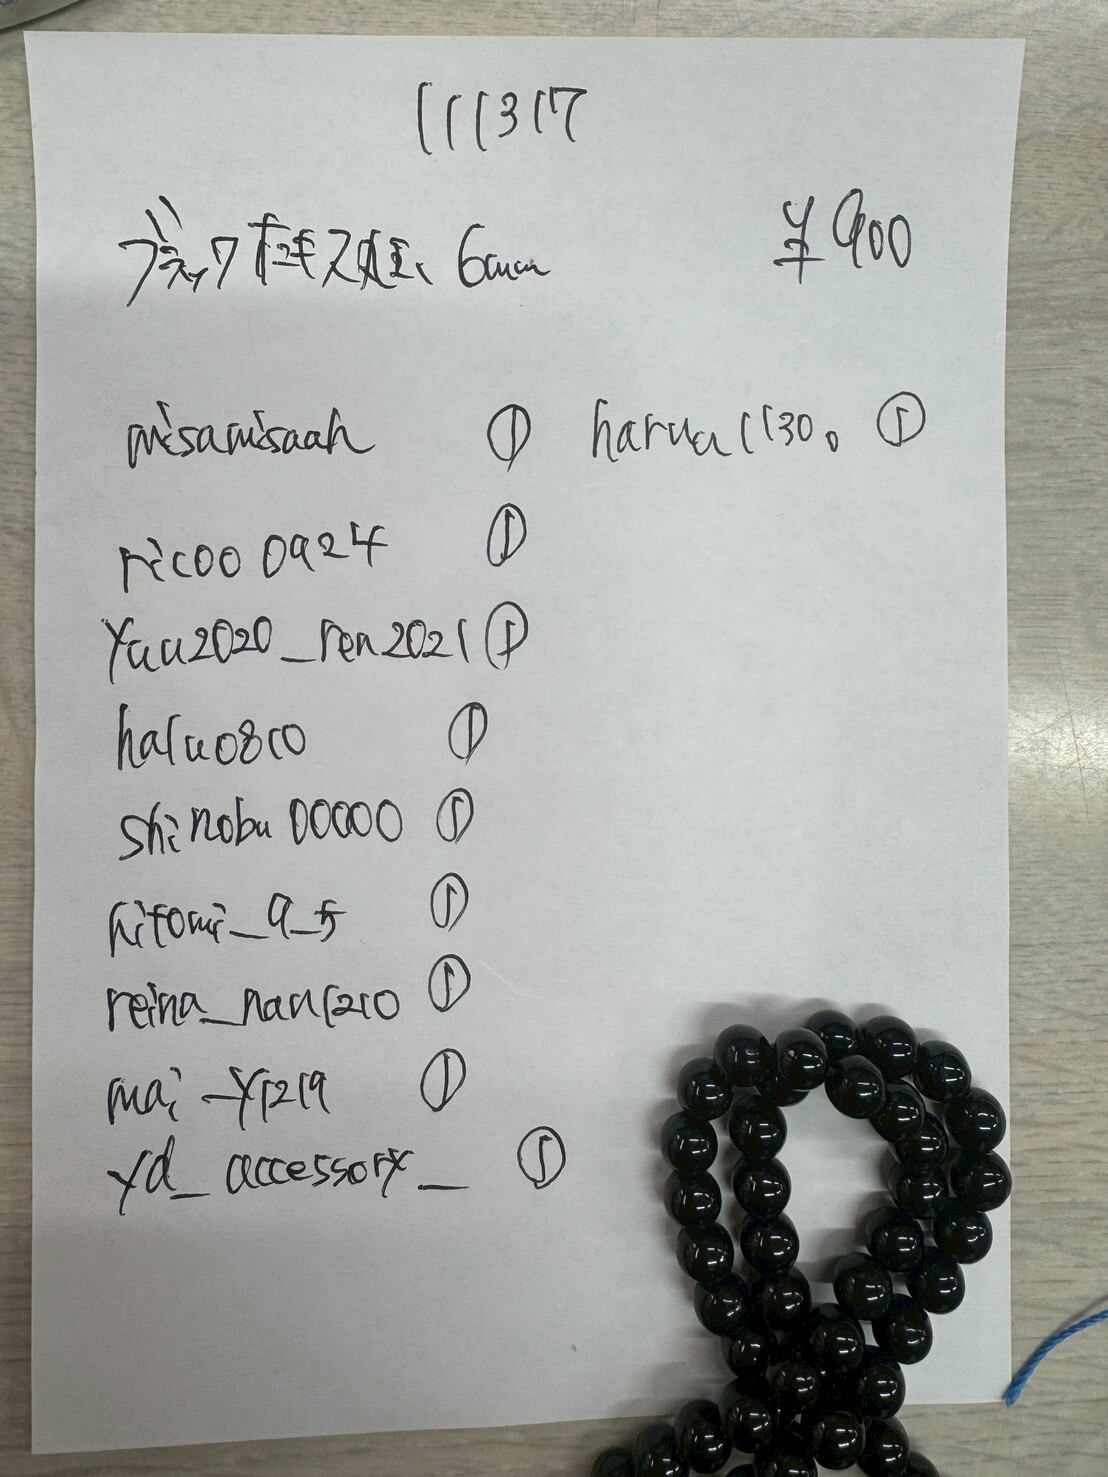 111317
ブラック 6mm ¥900
misamisaah ① harua1130。 ①
ricoo 0924 ①
yuu2020_ren2021 ①
halu0810 ①
shinobu 00000 ①
hitomi_9_5 ①
reina_nan1210 ①
mai_y1219 ①
yd_accessory_ ①